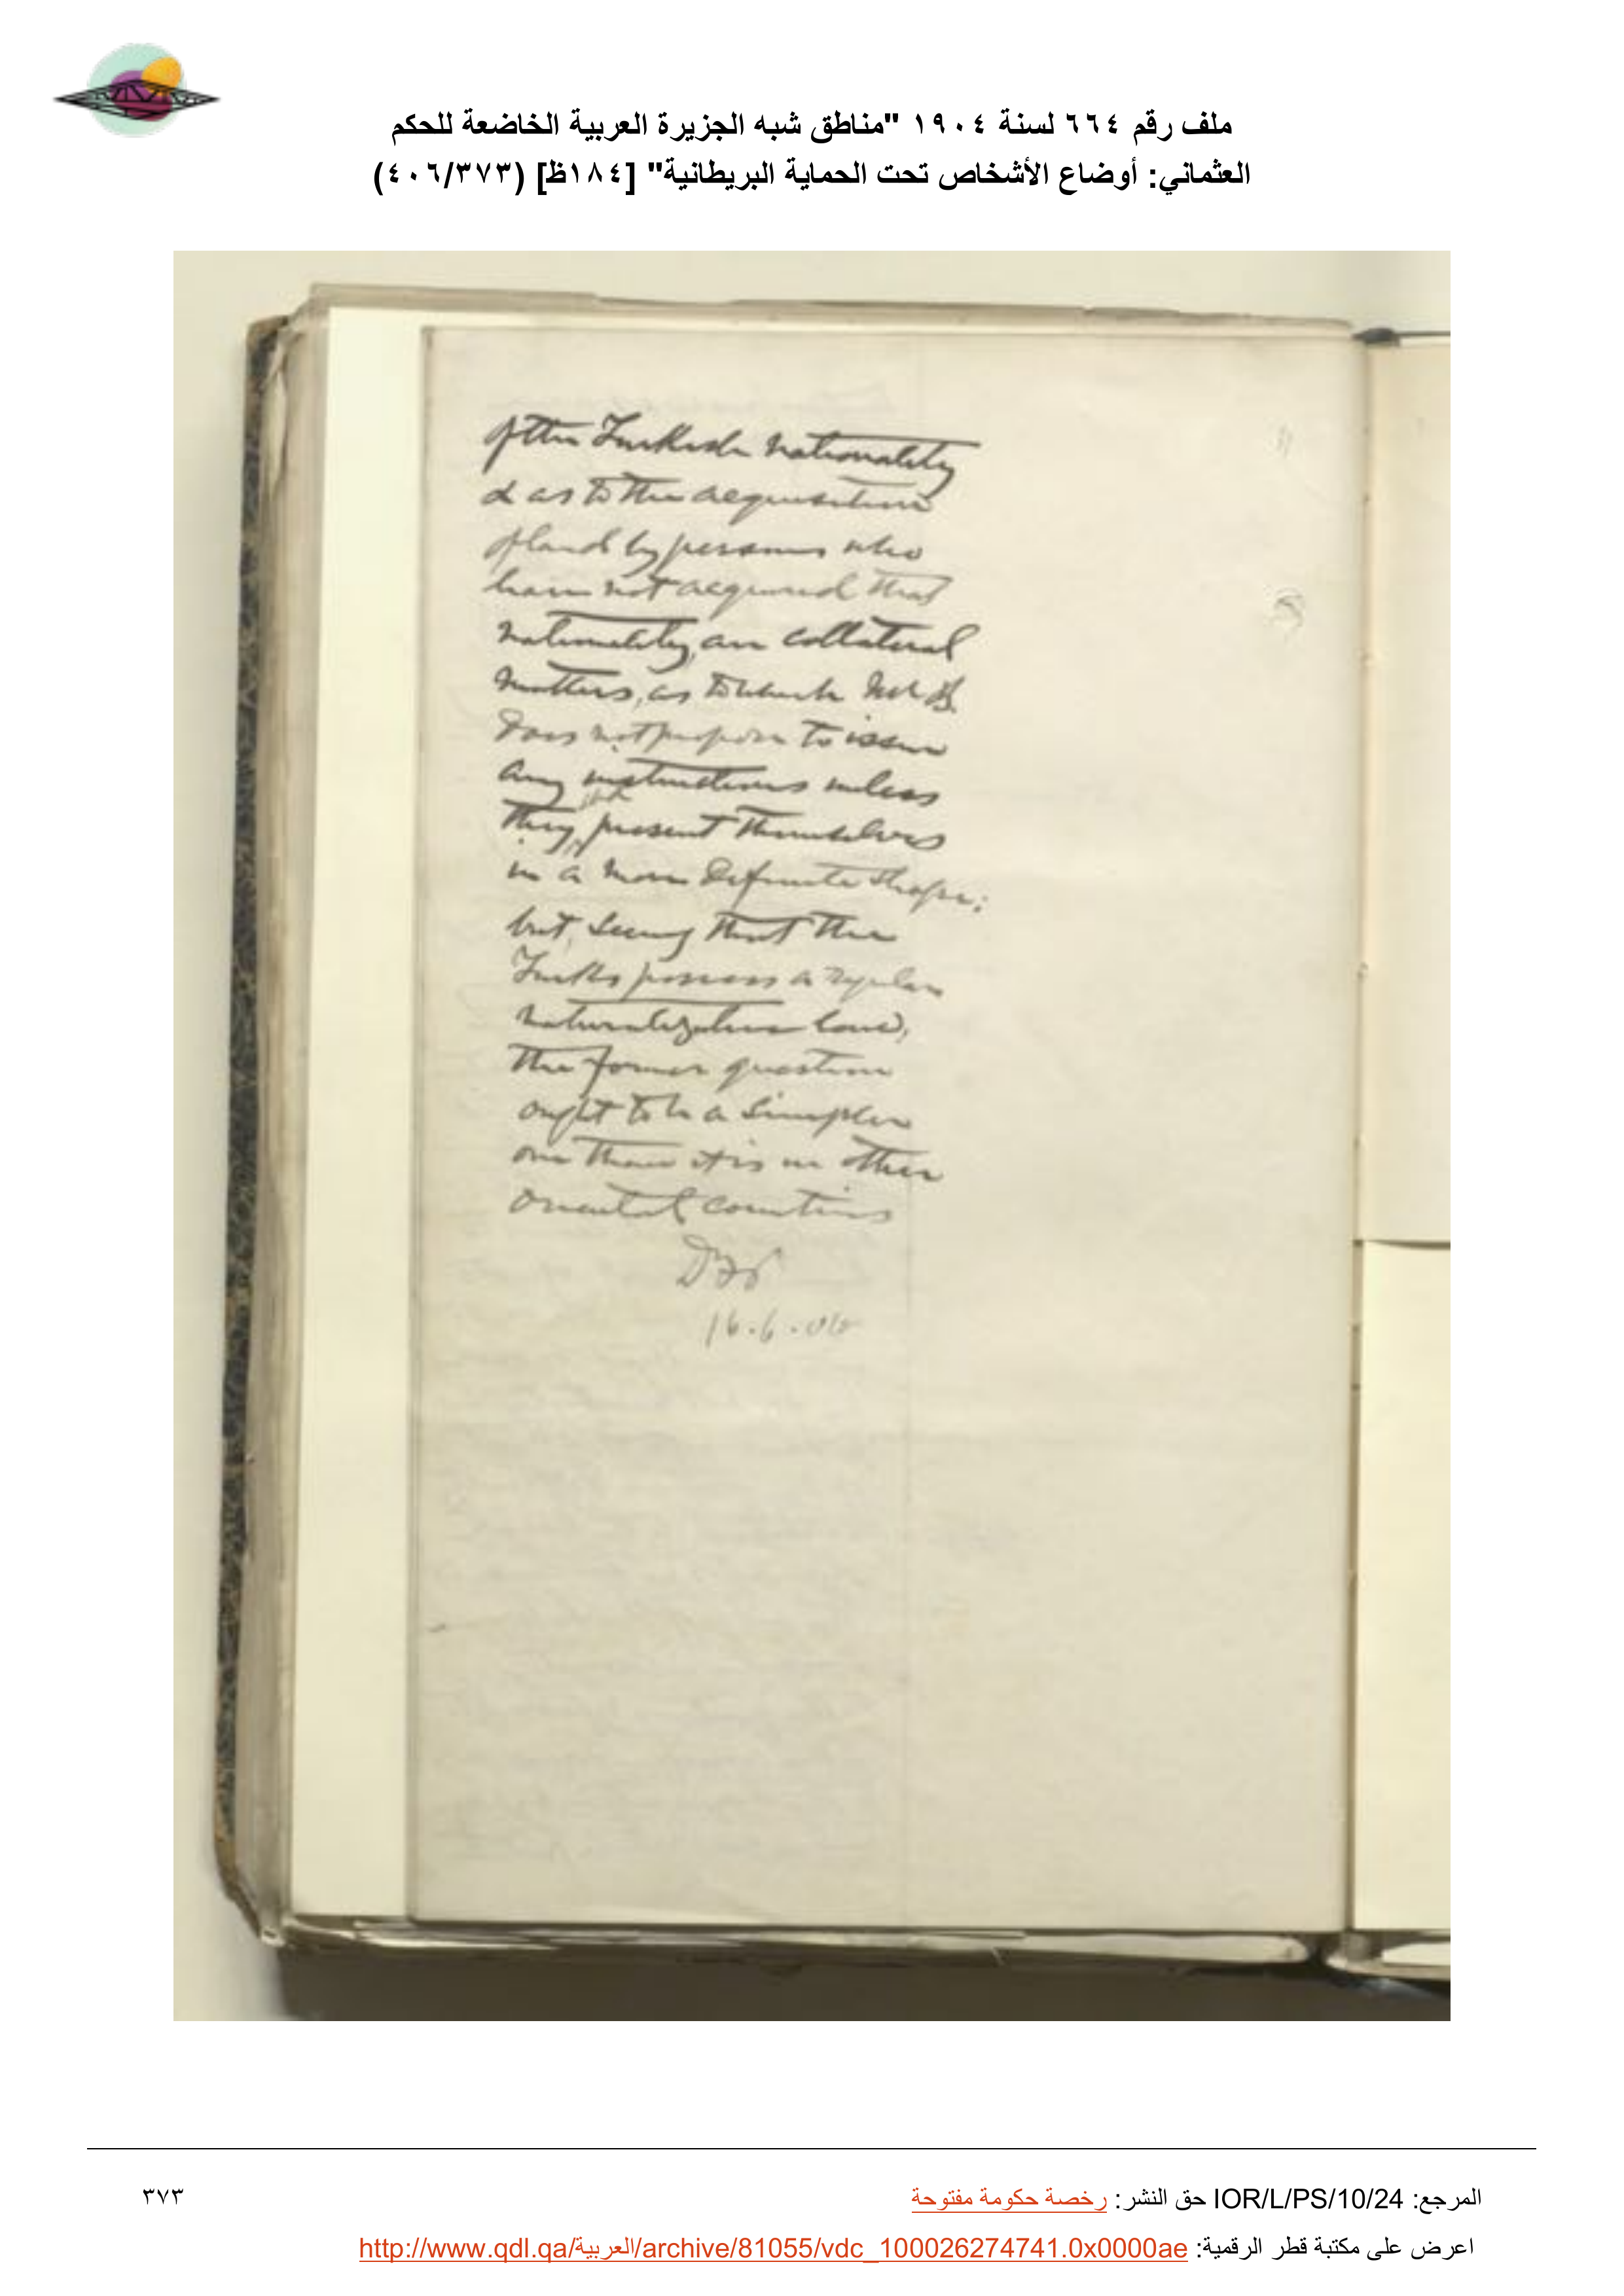 ملف رقم ٦٦٤ لسنة ١٩٠٤ "مناطق شبه الجزيرة العربية الخاضعة للحكم
العثماني: أوضاع الأشخاص تحت الحماية البريطانية" [١٨٤ظ] (٤٠٦/٣٧٣)
of the Turkish nationality
& as to the acquisition
of land by persons who
have not acquired that
nationality, are collateral
matters, as to which
does not propose to issue
any instructions unless
they present themselves
in a more definite shape;
but, seeing that the
Turks possess a regular
naturalization law,
the former question
ought to be a simpler
one than it is in other
oriental countries
16.6.06
المرجع: IOR/L/PS/10/24 حق النشر: رخصة حكومة مفتوحة
٣٧٣
اعرض على مكتبة قطر الرقمية: http://www.qdl.qa/العربية/archive/81055/vdc_100026274741.0x0000ae